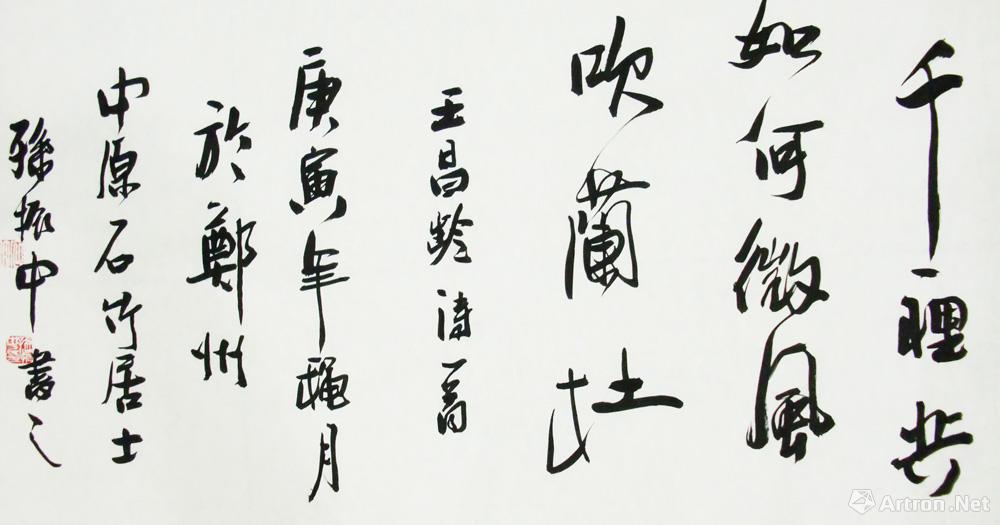 千理共
如何微風
吹蘭杜
王昌齡詩一首
庚寅年穐月
於鄭州
中原石竹居士
孫振中書之
Artron.Net